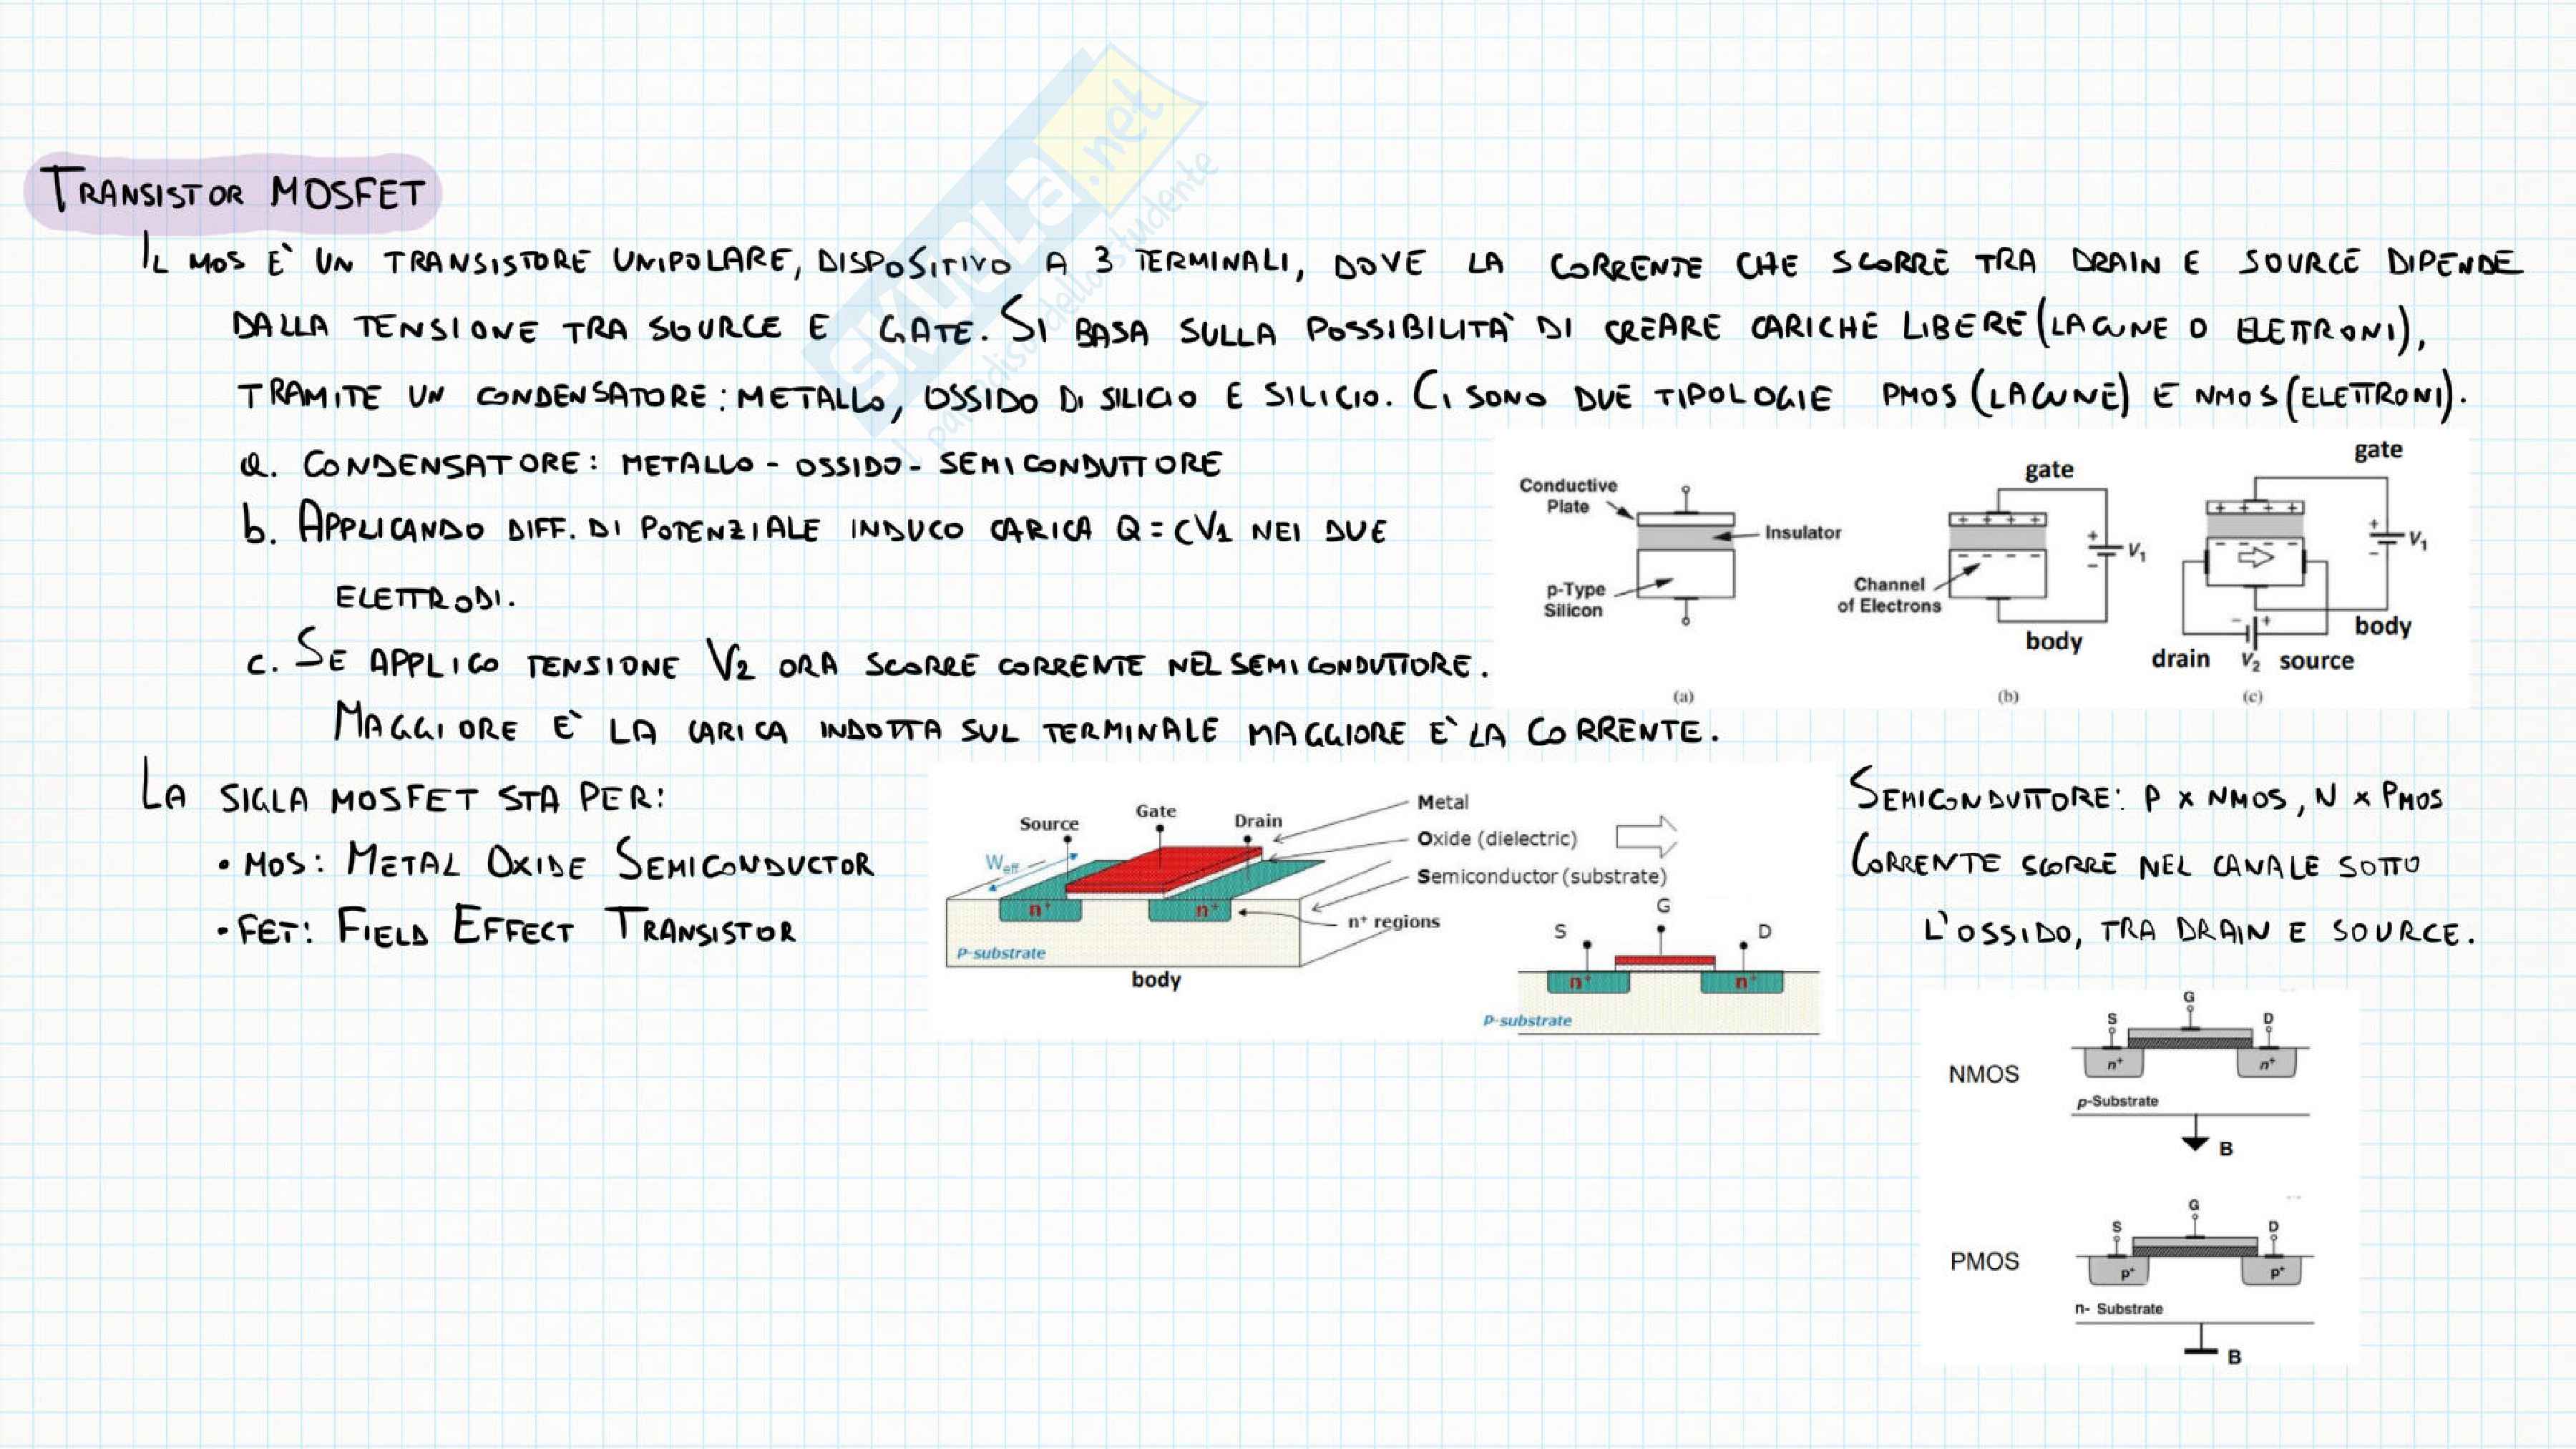 SKUOLA.net
il paradiso dello studente
TRANSISTOR MOSFET
IL MOS È UN TRANSISTORE UNIPOLARE, DISPOSITIVO A 3 TERMINALI, DOVE LA CORRENTE CHE SCORRE TRA DRAIN E SOURCE DIPENDE
DALLA TENSIONE TRA SOURCE E GATE. SI BASA SULLA POSSIBILITÀ DI CREARE CARICHE LIBERE (LACUNE O ELETTRONI),
TRAMITE UN CONDENSATORE: METALLO, OSSIDO DI SILICIO E SILICIO. CI SONO DUE TIPOLOGIE PMOS (LACUNE) E NMOS (ELETTRONI).
a. CONDENSATORE: METALLO - OSSIDO - SEMICONDUTTORE
b. APPLICANDO DIFF. DI POTENZIALE INDUCO CARICA Q = CV1 NEI DUE
ELETTRODI.
c. SE APPLICO TENSIONE V2 ORA SCORRE CORRENTE NEL SEMICONDUTTORE.
MAGGIORE È LA CARICA INDOTTA SUL TERMINALE MAGGIORE È LA CORRENTE.
Conductive
Plate
Insulator
p-Type
Silicon
(a)
gate
+ + + +
- - - -
+
V1
-
Channel
of Electrons
body
(b)
gate
+ + + +
- - - -
+
V1
-
body
- +
drain V2 source
(c)
LA SIGLA MOSFET STA PER:
• MOS: METAL OXIDE SEMICONDUCTOR
• FET: FIELD EFFECT TRANSISTOR
Source
Gate
Drain
Weff
Metal
Oxide (dielectric)
Semiconductor (substrate)
n+ regions
n+
n+
P-substrate
body
G
S
D
n+
n+
P-substrate
SEMICONDUTTORE: P x NMOS, N x PMOS
CORRENTE SCORRE NEL CANALE SOTTO
L'OSSIDO, TRA DRAIN E SOURCE.
NMOS
G
S
D
n+
n+
p-Substrate
B
PMOS
G
S
D
p+
p+
n- Substrate
B